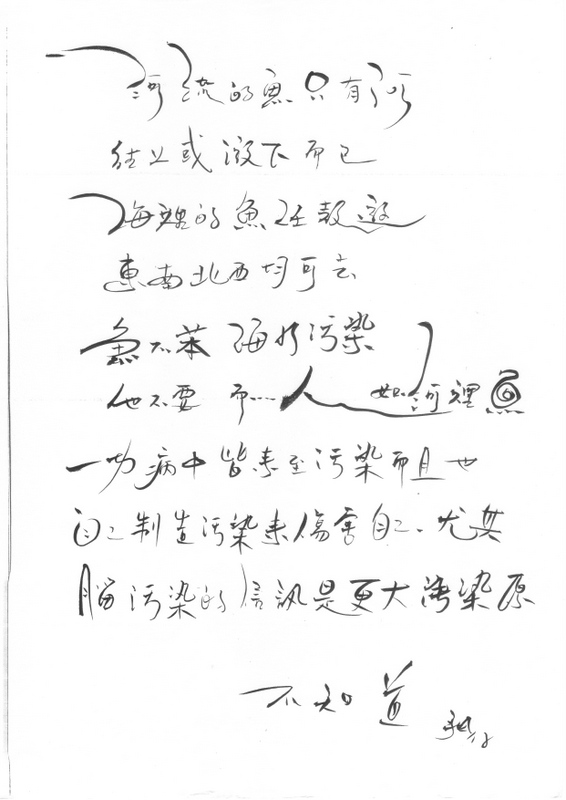 河流的魚只有河
往上或游下而已
海裡的魚任散遊
東南北西均可去
魚不笨 海水污染
他不要 而…人如河裡魚
一切病中皆來至污染而且也
自己制造污染來傷害自己、尤其
腦污染的信訊是更大污染原
不知道